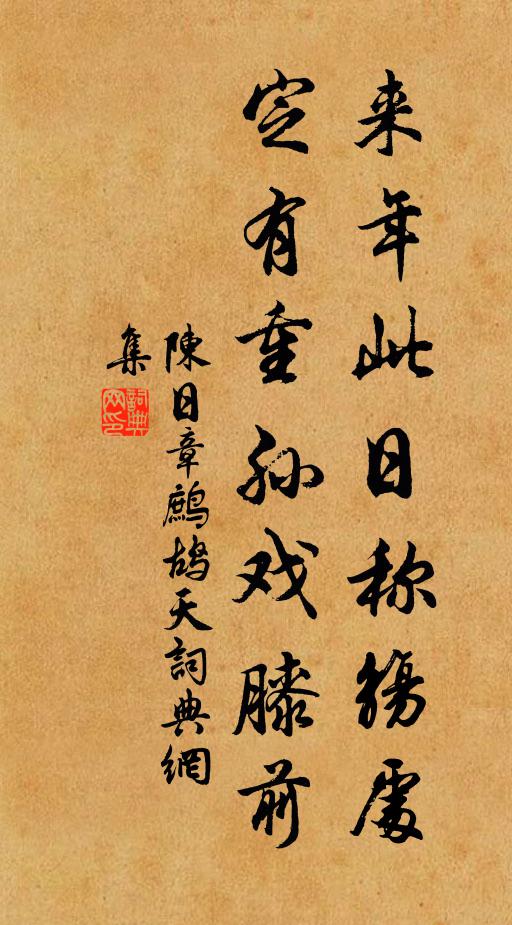 来年此日称觞處
定有重孙戏膝前
陳日章鷓鴣天詞典網
集
詞典
网印